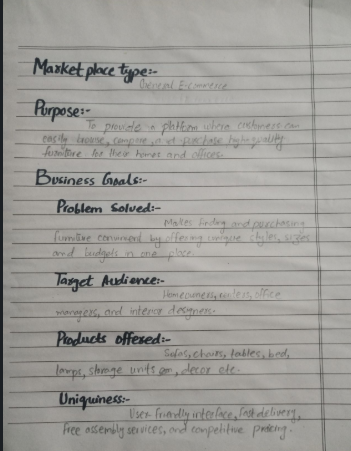 Market place type:-
General E-commerce
Purpose:-
To provide a platform where customers can
easily browse, compare, and purchase high-quality
furniture for their homes and offices.
Business Goals:-
Problem Solved:-
Makes finding and purchasing
furniture convenient by offering unique styles, sizes
and budgets in one place.
Target Audience:-
Homeowners, office
managers, and interior designers.
Products offered:-
Sofas, chairs, tables, bed,
lamps, storage units, decor etc.
Uniquiness:-
User-friendly interface, fast delivery,
free assembly services, and competitive pricing.